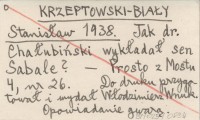 KRZEPTOWSKI-BIAŁY
Stanisław 1938. Jak dr.
Chałubiński wykładał sen
Sabale? — Prosto z Mostu
4, nr 26. Do druku przygo-
tował i wydał Włodzimierz Wnuk.
Opowiadanie gwarą.